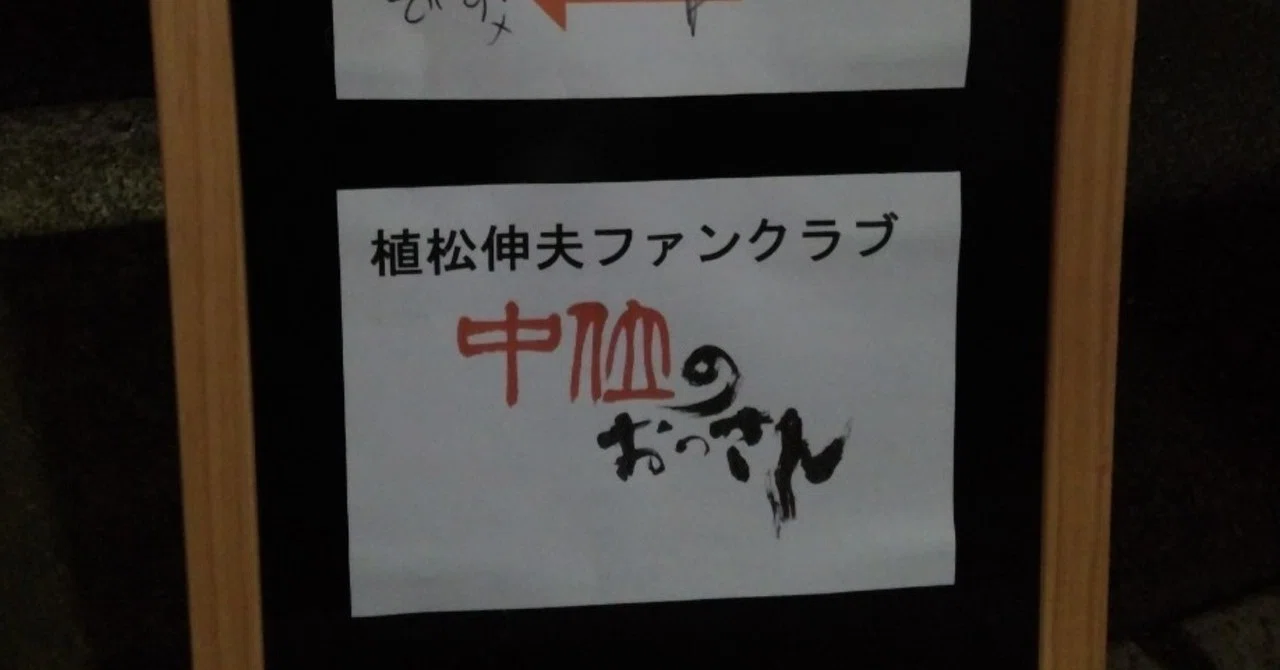 植松伸夫ファンクラブ
中位の
おっさん